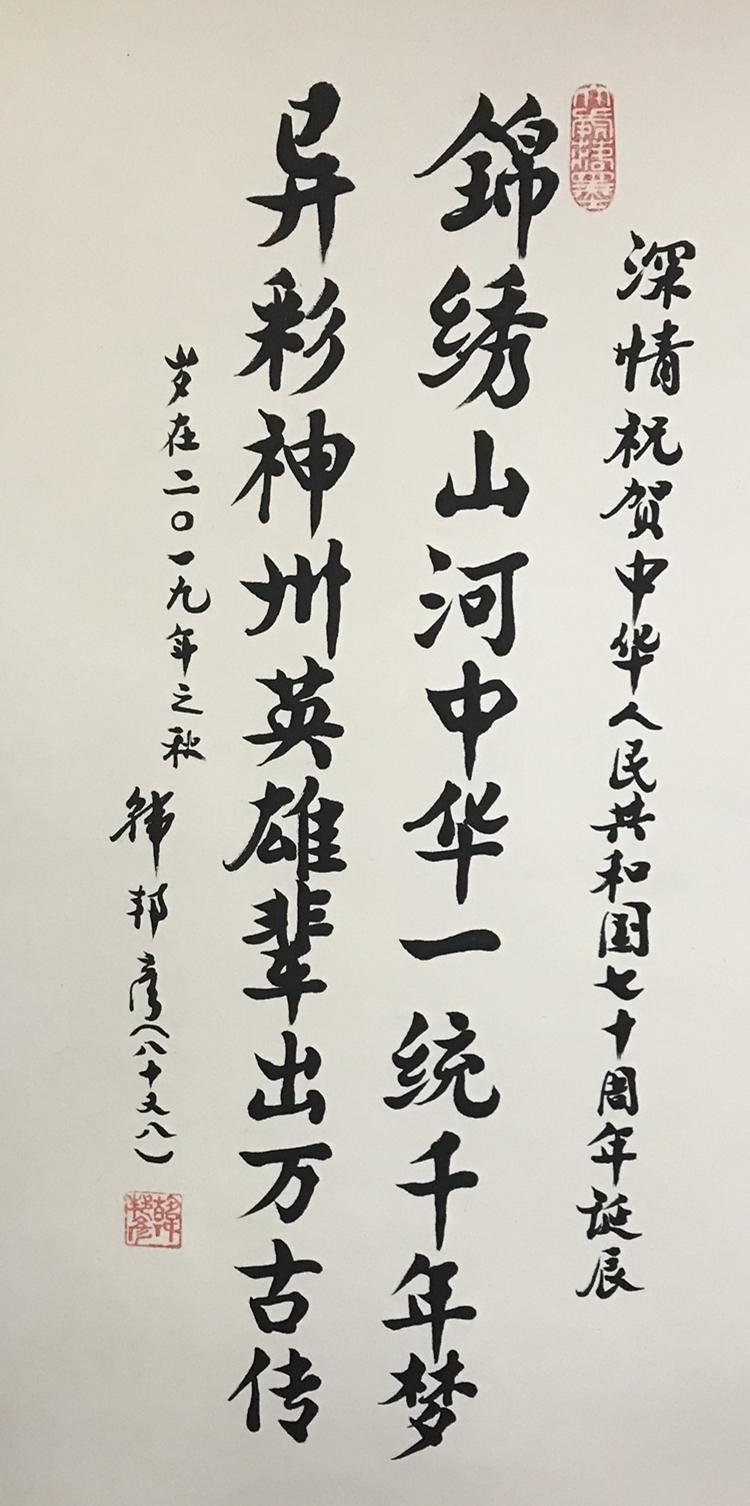 深情祝贺中华人民共和国七十周年诞辰
錦绣山河中华一统千年梦
异彩神州英雄辈出万古传
岁在二〇一九年之秋
韩邦彦(八十又八)